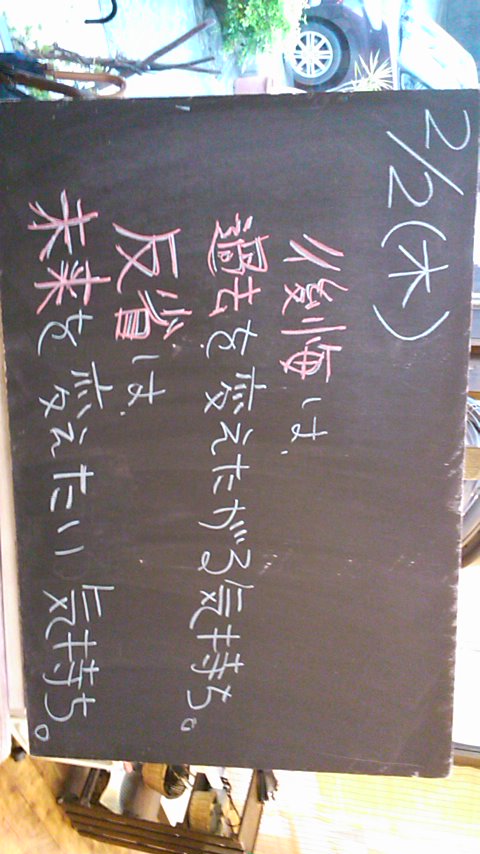 2/2(木)
後悔は、
過去を変えたがる気持ち。
反省は、
未来を変えたい気持ち。